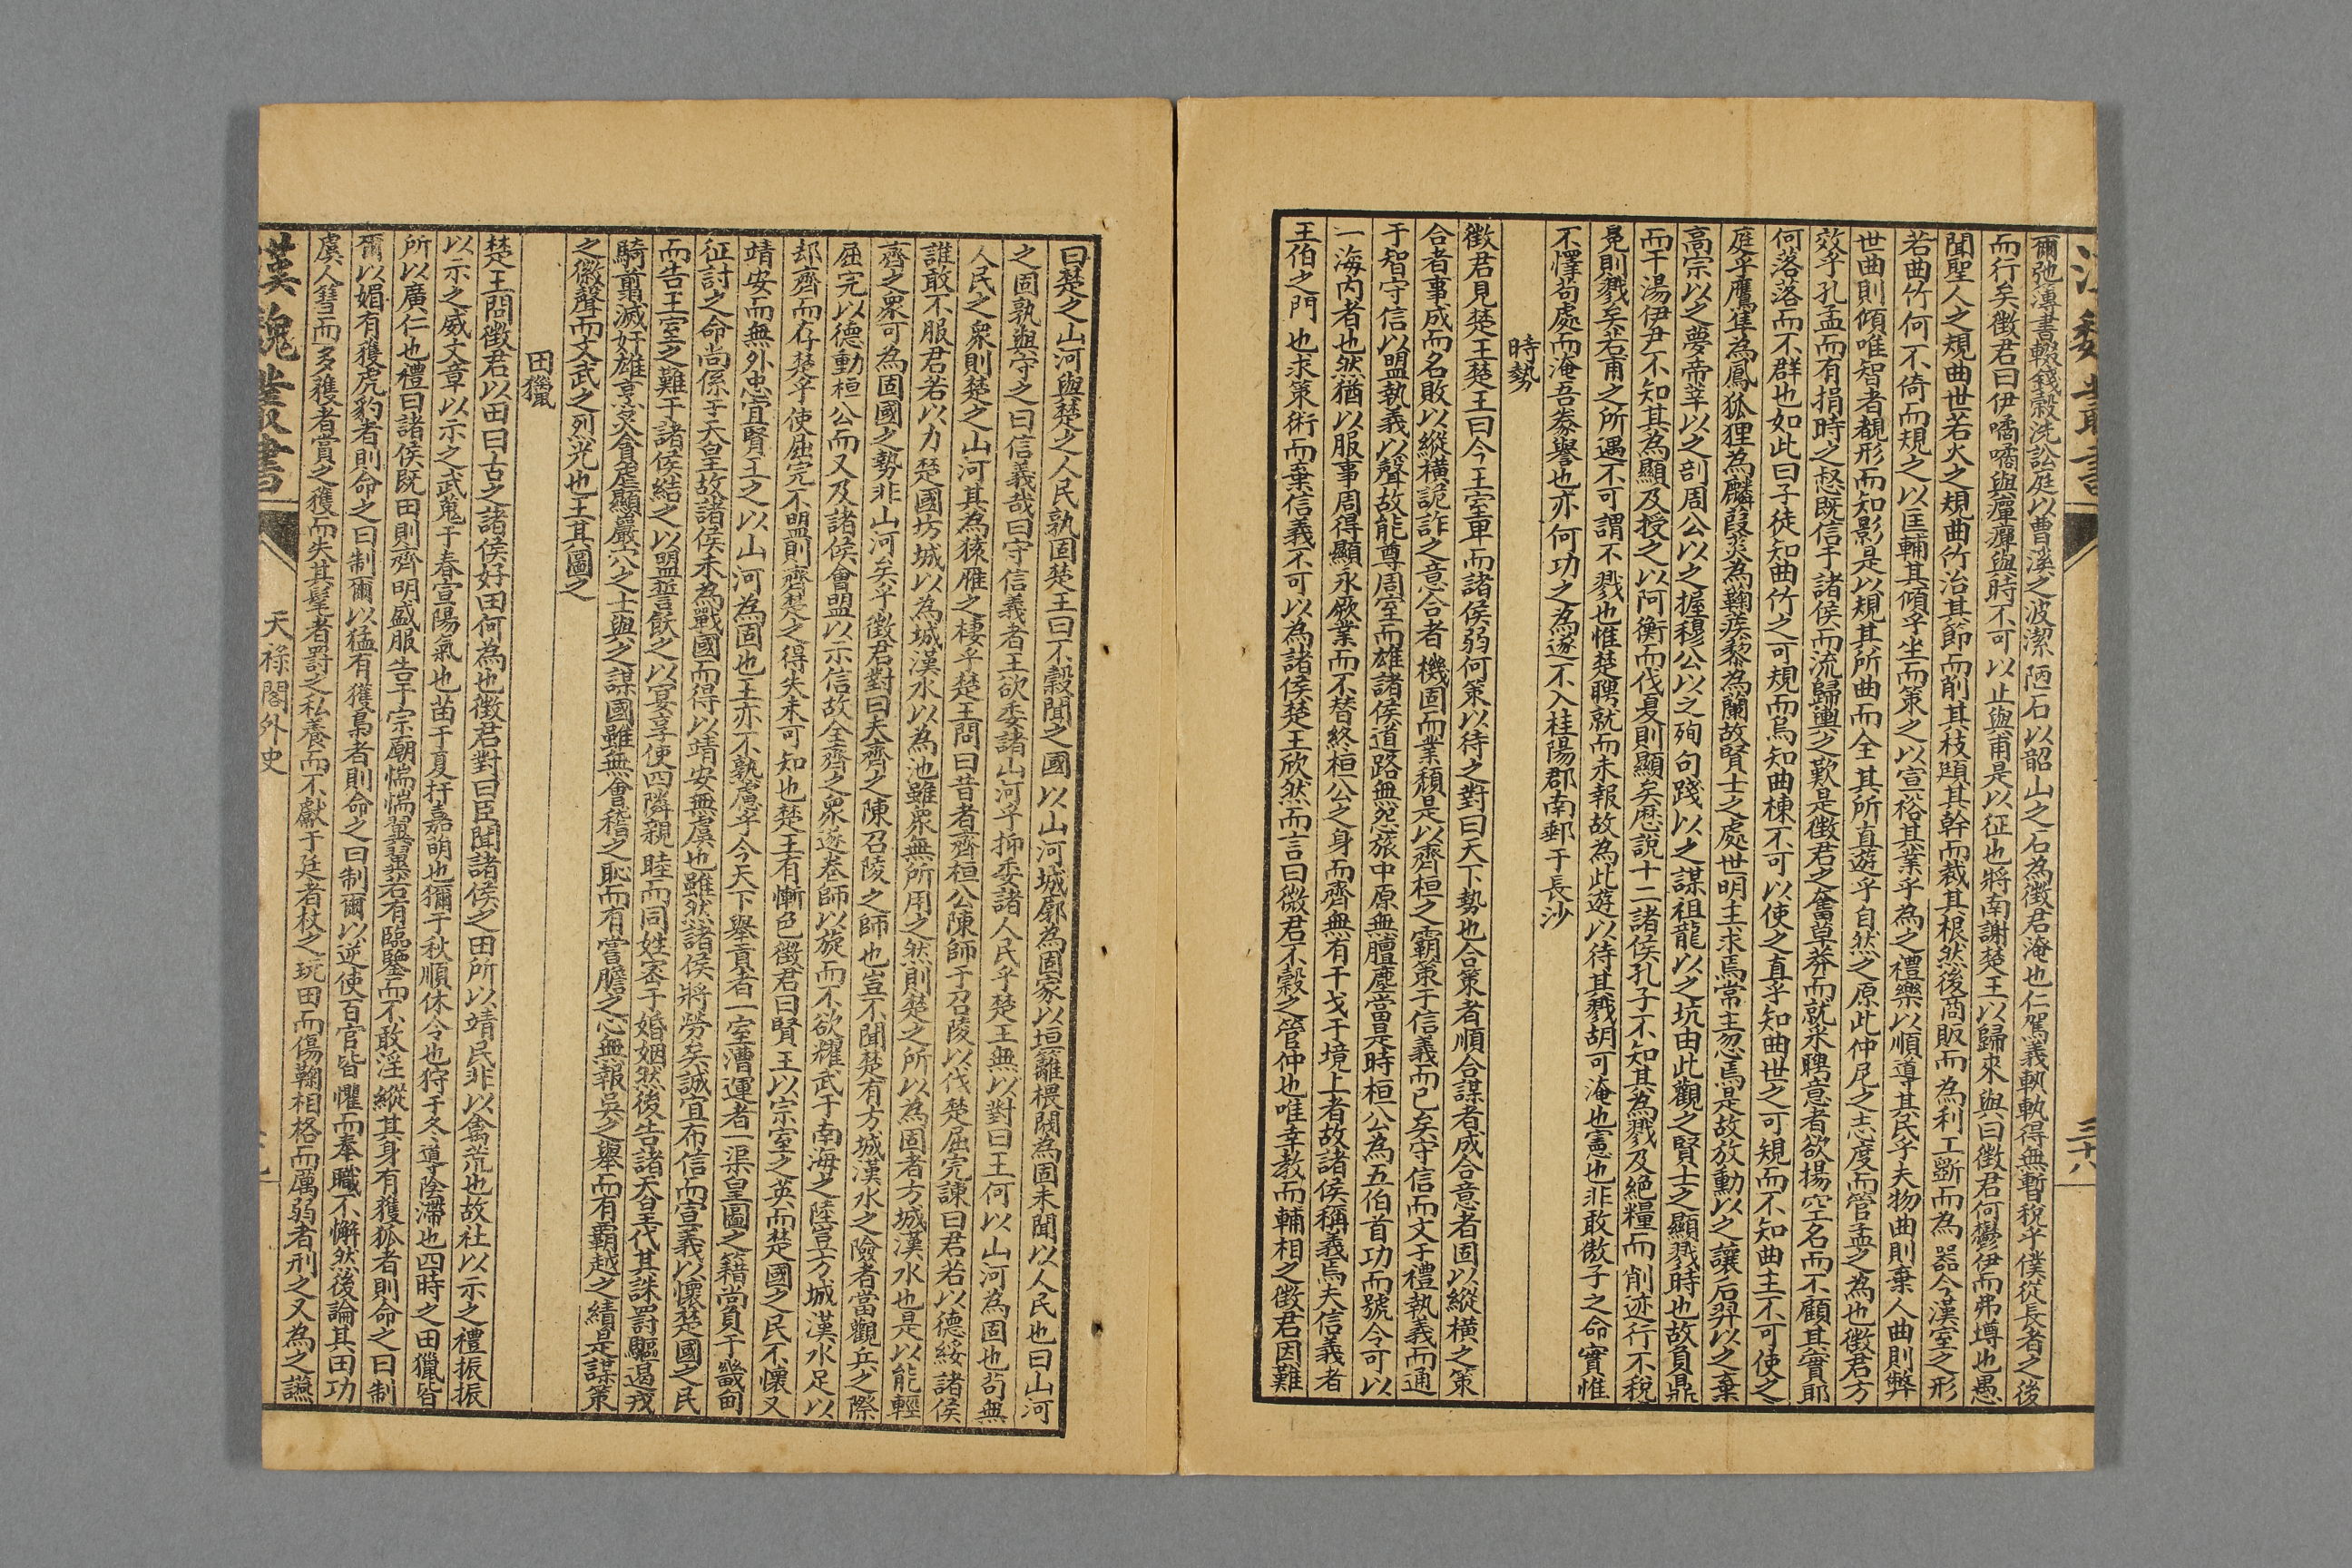 漢魏叢書
三十八
爾弛薄書輟錢穀洗訟庭以曹溪之波潔陋石以韶山之石為徵君淹也仁駕義軏執得無暫稅乎僕從長者之後
而行矣徵君曰伊噊噊與癉癉與時不可以止與甫是以征也將南謝楚王以歸來與曰徵君何鬱伊而弗㙛也愚
聞聖人之規曲世若火之規曲竹治其節而削其枝䫌其幹而裁其根然後商販而為利工斲而為器今漢室之形
若曲竹何不倚而規之以匡輔其傾乎坐而策之以宣裕其業乎為之禮樂以順導其民乎夫物曲則棄人曲則弊
世曲則傾唯智者覩形而知影是以規其所曲而全其所直遊乎自然之原此仲尼之志度而管孟之為也徵君方
效乎孔孟而有捐時之愸既信于諸侯而流歸輿之歎是徵君之奮草莽而就采聘意者欲揚空名而不顧其實耶
何落落而不群也如此曰子徒知曲竹之可規而烏知曲棟不可以使之直乎知曲世之可規而不知曲主不可使之
庭乎鷹隼為鳳狐狸為麟葭菼為鞠蒺藜為蘭故賢士之處世明主求焉常主忽焉是故放勳以之讓后羿以之棄
高宗以之夢帝莘以之剖周公以之握穆公以之殉句踐以之謀祖龍以之坑由此觀之賢士之顯戮時也故負鼎
而干湯伊尹不知其為顯及授之以阿衡而伐夏則顯矣歷說十二諸侯孔子不知其為戮及絕糧而削迹行不稅
冕則戮矣若甫之所遇不可謂不戮也惟楚聘就而未報故為此遊以待其戮胡可淹也憲也非敢傲子之命實惟
不懌苟處而淹吾豢譽也亦何功之為遂不入桂陽郡南郵于長沙
時勢
徵君見楚王楚王曰今王室卑而諸侯弱何策以待之對曰天下勢也合策者順合謀者成合意者固以縱橫之策
合者事成而名敗以縱橫詭詐之意合者機固而業頹是以齊桓之霸策于信義而已矣守信而文于禮執義而通
于智守信以盟執義以聲故能尊周室而雄諸侯道路無怨旅中原無膻塵當是時桓公為五伯首功而號令可以
一海內者也然猶以服事周得顯永厥業而不替終桓公之身而齊無有干戈于境上者故諸侯稱義焉夫信義者
王伯之門也求策術而棄信義不可以為諸侯楚王欣然而言曰微君不穀之管仲也唯幸教而輔相之徵君因難
曰楚之山河與楚之人民孰固楚王曰不穀聞之國以山河城廓為固家以垣籬椳闑為固未聞以人民也曰山河
之固孰與守之曰信義哉曰守信義者王欲委諸山河乎抑委諸人民乎楚王無以對曰王何以山河為固也苟無
人民之衆則楚之山河其為猿雁之棲乎楚王問曰昔者齊桓公陳師于召陵以伐楚屈完諫曰君若以德綏諸侯
誰敢不服君若以力楚國坊城以為城漢水以為池雖衆無所用之然則楚之所以為固者方城漢水也是以能輕
齊之衆可為固國之勢非山河矣乎徵君對曰夫齊之陳召陵之師也豈不聞楚有方城漢水之險者當觀兵之際
屈完以德動桓公而又及諸侯會盟以示信故全齊之衆遂卷師以旋而不欲耀武于南海之陸豈方城漢水足以
却齊而存楚乎使屈完不盟則齊楚之得失未可知也楚王有慚色徵君曰賢王以宗室之英而楚國之民不懷又
靖安而無外患宜賢王之以山河為固也王亦不孰慮乎今天下舉貢者一室漕運者一渠皇圖之籍尚負于畿甸
征討之命尚係于天皇故諸侯未為戰國而得以靖安無虞也雖然諸侯將勞矣誠宜布信而宣義以懷楚國之民
而告王室之難于諸侯結之以盟誓飲之以宴享使四隣親睦而同姓密于婚姻然後告諸天皇代其誅罰驅遏戎
騎翦滅奸雄烹炙貪虐顯巖穴之士與之謀國雖無會稽之恥而有嘗膽之心無報吳之舉而有霸越之績是謀策
之徽聲而文武之烈光也王其圖之
田獵
楚王問徵君以田曰古之諸侯好田何為也徵君對曰臣聞諸侯之田所以靖民非以禽荒也故社以示之禮振振
以示之威文章以示之武蒐于春宣陽氣也苗于夏扞嘉明也獮于秋順休令也狩于冬導陰滯也四時之田獵皆
所以廣仁也禮曰諸侯既田則齊明盛服告于宗廟惴惴翼翼若有臨鑒而不敢淫縱其身有獲狐者則命之曰制
爾以媚有獲虎豹者則命之曰制爾以猛有獲梟者則命之曰制爾以逆使百官皆懼而奉職不懈然後論其田功
虞人讐而多獲者賞之獲而失其髦者罰之私養而不獻于廷者杖之玩田而傷鞠相格而厲弱者刑之又為之讌
漢魏叢書
天祿閣外史